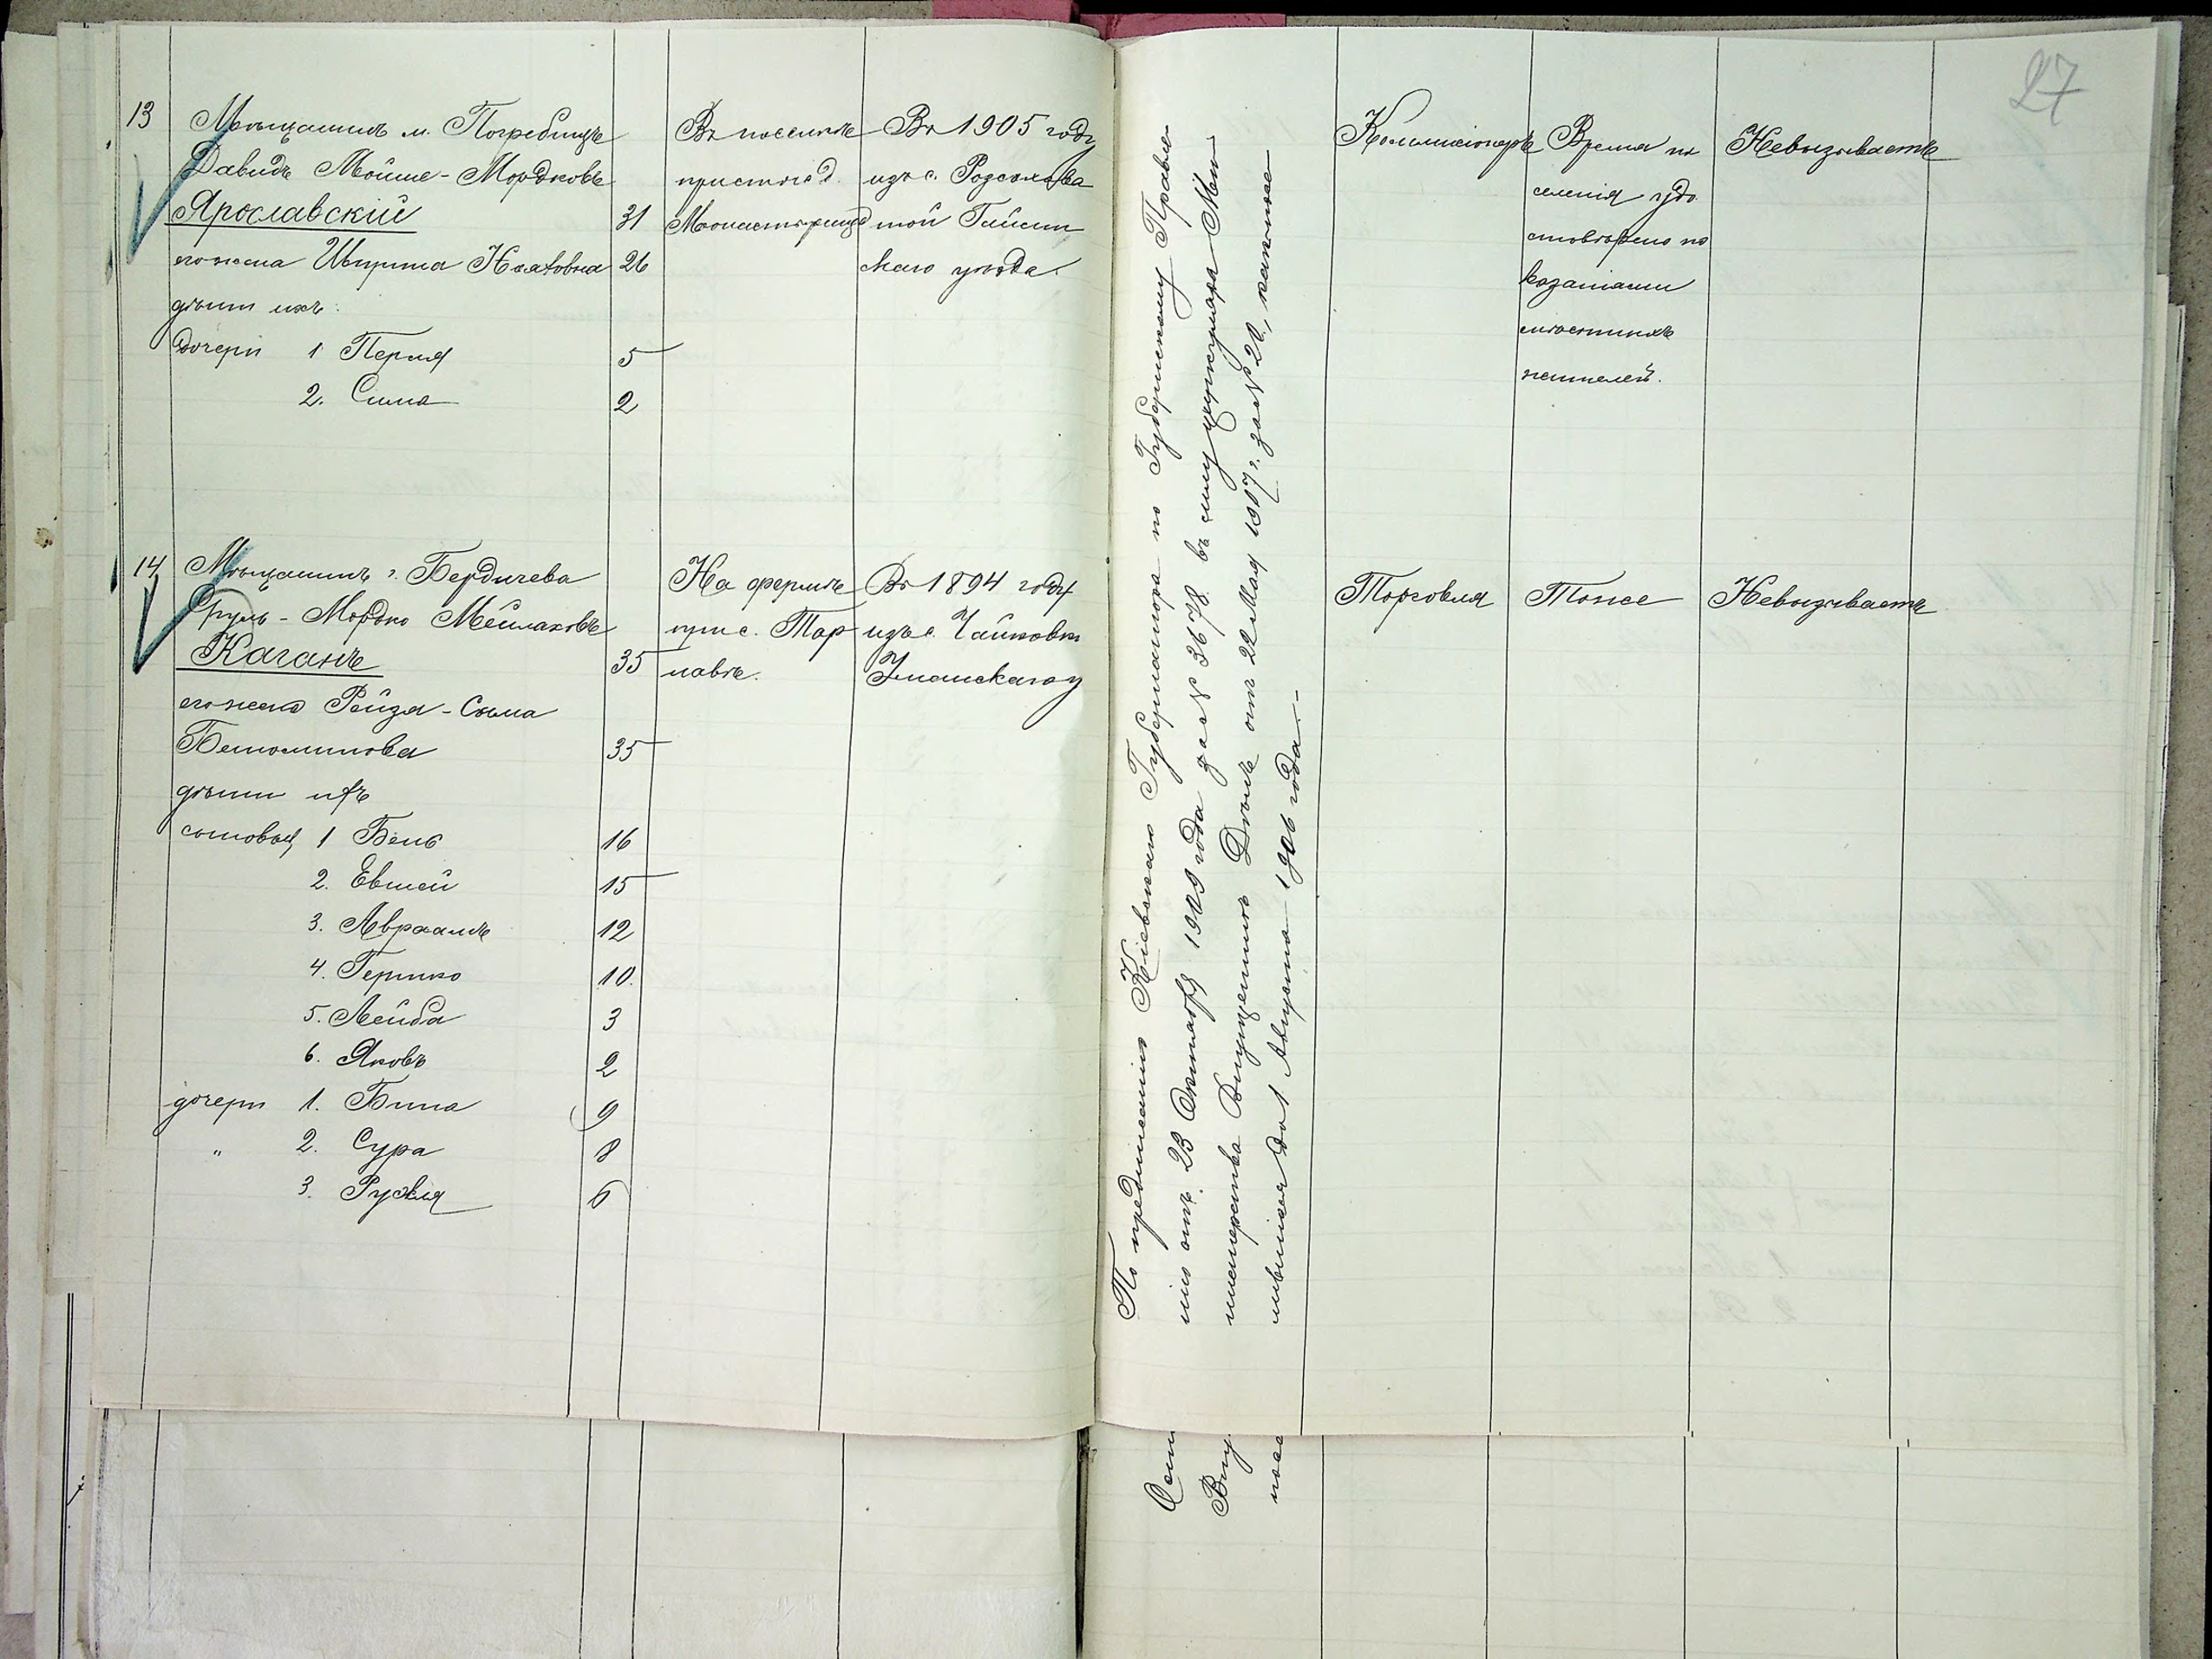 27
13
Мѣщанинъ м. Погребищъ
Давидъ Мойше-Мордковъ
Ярославскій 31
его жена Ципра 26
дѣти ихъ:
дочери 1 Перля 5
2. Сима 2
Въ поселкѣ
при ст. ж. д.
Монастырище
Въ 1905 году
изъ с.
Гайсин
скаго уѣзда.
Коммисіонеръ
Время по
селенія удо
стовѣрено по
казаніями
мѣстныхъ
жителей.
Невызываетъ
14
Мѣщанинъ г. Бердичева
Сруль-Мордко Мейлаховъ
Каганъ 35
его жена Рейзя-Сима
Беньоминова 35
дѣти ихъ
сыновья 1 Бень 16
2. Евшей 15
3. Авраамъ 12
4. Гершко 10.
5. Лейба 3
6. Яковъ 2
дочери 1. Бина 9
" 2. Сура 8
3. Рухля 6
На фермѣ
при с. Тар
навѣ.
Въ 1894 году
изъ с. Чайковки
Уманскаго у
Торговля
Тоже
Невызываетъ
По предписанію Кіевскаго Губернатора по Губернскому Правле-
нію отъ 23 Октября 1909 года за № 3678 въ силу циркуляра Ми-
нистерства Внутреннихъ Дѣлъ отъ 22 Мая 1907 г. за № 20, какъ посе-
лившіяся до 1 Августа 1906 года.-
Вну
посе